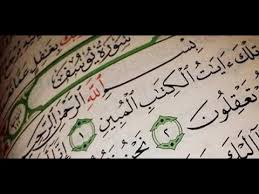 سُورَةُ يُوسُفَ
بِسْمِ اللَّهِ الرَّحْمَٰنِ الرَّحِيمِ
ءَايَٰتُ الْكِتَٰبِ الْمُبِينِ ١
تَعْقِلُونَ ٢ نَحْنُ